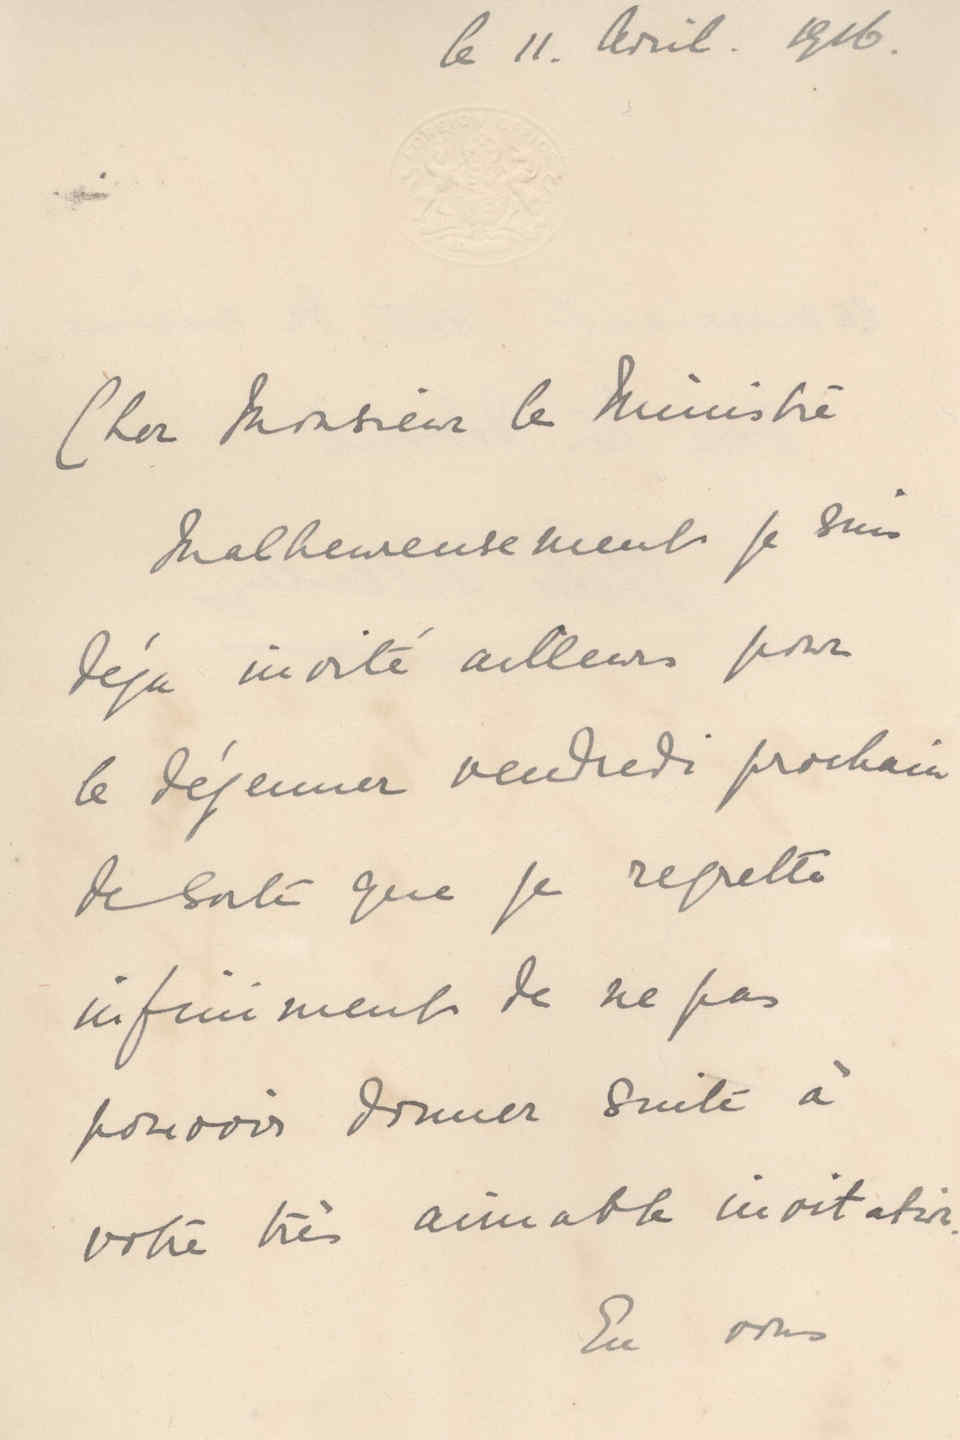 le 11. Avril. 1916.
FOREIGN OFFICE
Cher Monsieur le Ministre
Malheureusement je suis
déja invité ailleurs pour
le déjeuner vendredi prochain
de sorte que je regrette
infiniment de ne pas
pouvoir donner suite à
votre très aimable invitation.
En vous